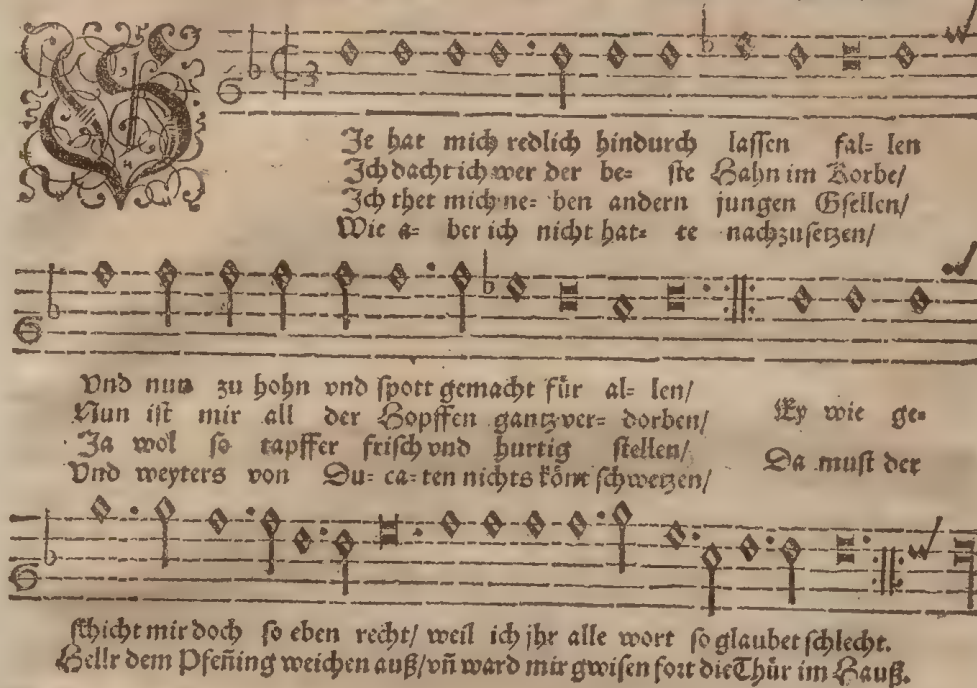 SJe hat mich redlich hindurch lassen fal= len
Jch dacht ich wer der be= ste Hahn im Korbe/
Jch thet mich ne= ben andern jungen Gsellen/
Wie a= ber ich nicht hat= te nachzusetzen/
Vnd nun zu hohn vnd spott gemacht für al= len/
Nun ist mir all der Hopffen gantz ver= dorben/
Ja wol so tapffer frisch vnd hurtig stellen/
Vnd weyters von Du= ca= ten nichts könt schwetzen/
Ey wie ge=
Da must der
schicht mir doch so eben recht/ weil ich jhr alle wort so glaubet schlecht.
Hellr dem Pfeñing weichen auß/ vñ ward mir gwisen fort die Thür im Hauß.